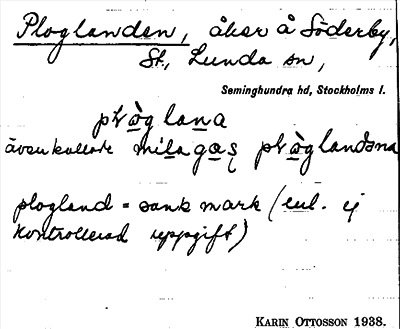 Ploglanden, åker å Söderby,
St., Lunda sn,
Seminghundra hd, Stockholms l.
plòglana
även kallade milagas plòglandana
plogland = sank mark (enl. ej
kontrollerad uppgift)
KARIN OTTOSSON 1938.